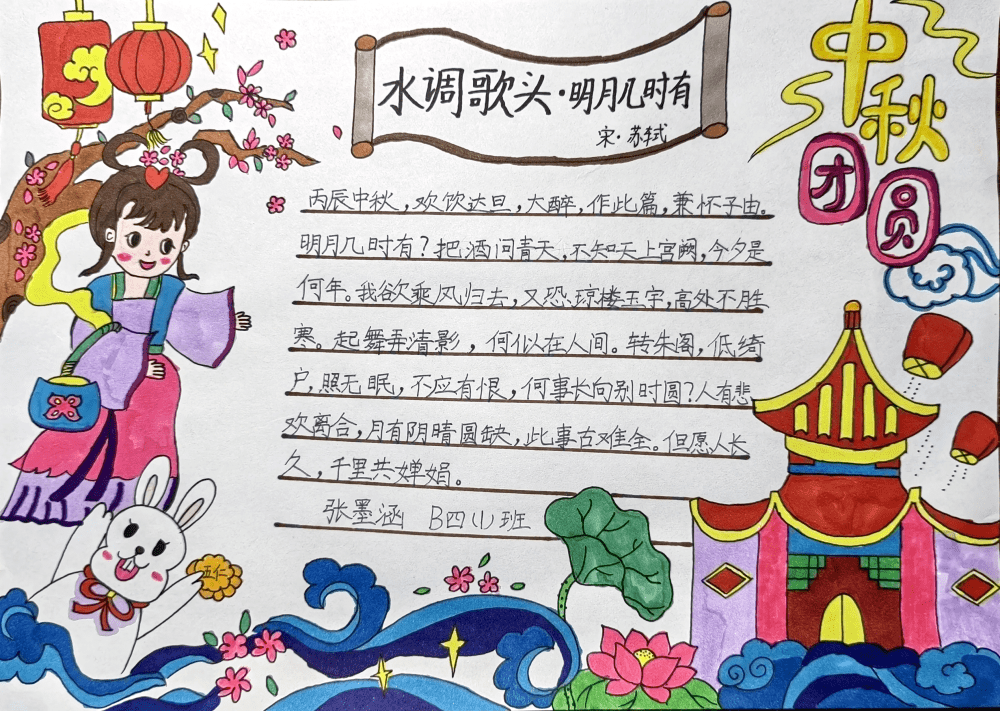 水调歌头·明月几时有
宋·苏轼
中秋
团圆
丙辰中秋，欢饮达旦，大醉，作此篇，兼怀子由。
明月几时有？把酒问青天，不知天上宫阙，今夕是
何年。我欲乘风归去，又恐琼楼玉宇，高处不胜
寒。起舞弄清影，何似在人间。转朱阁，低绮
户，照无眠，不应有恨，何事长向别时圆？人有悲
欢离合，月有阴晴圆缺，此事古难全。但愿人长
久，千里共婵娟。
张墨涵 B四(1)班
五仁